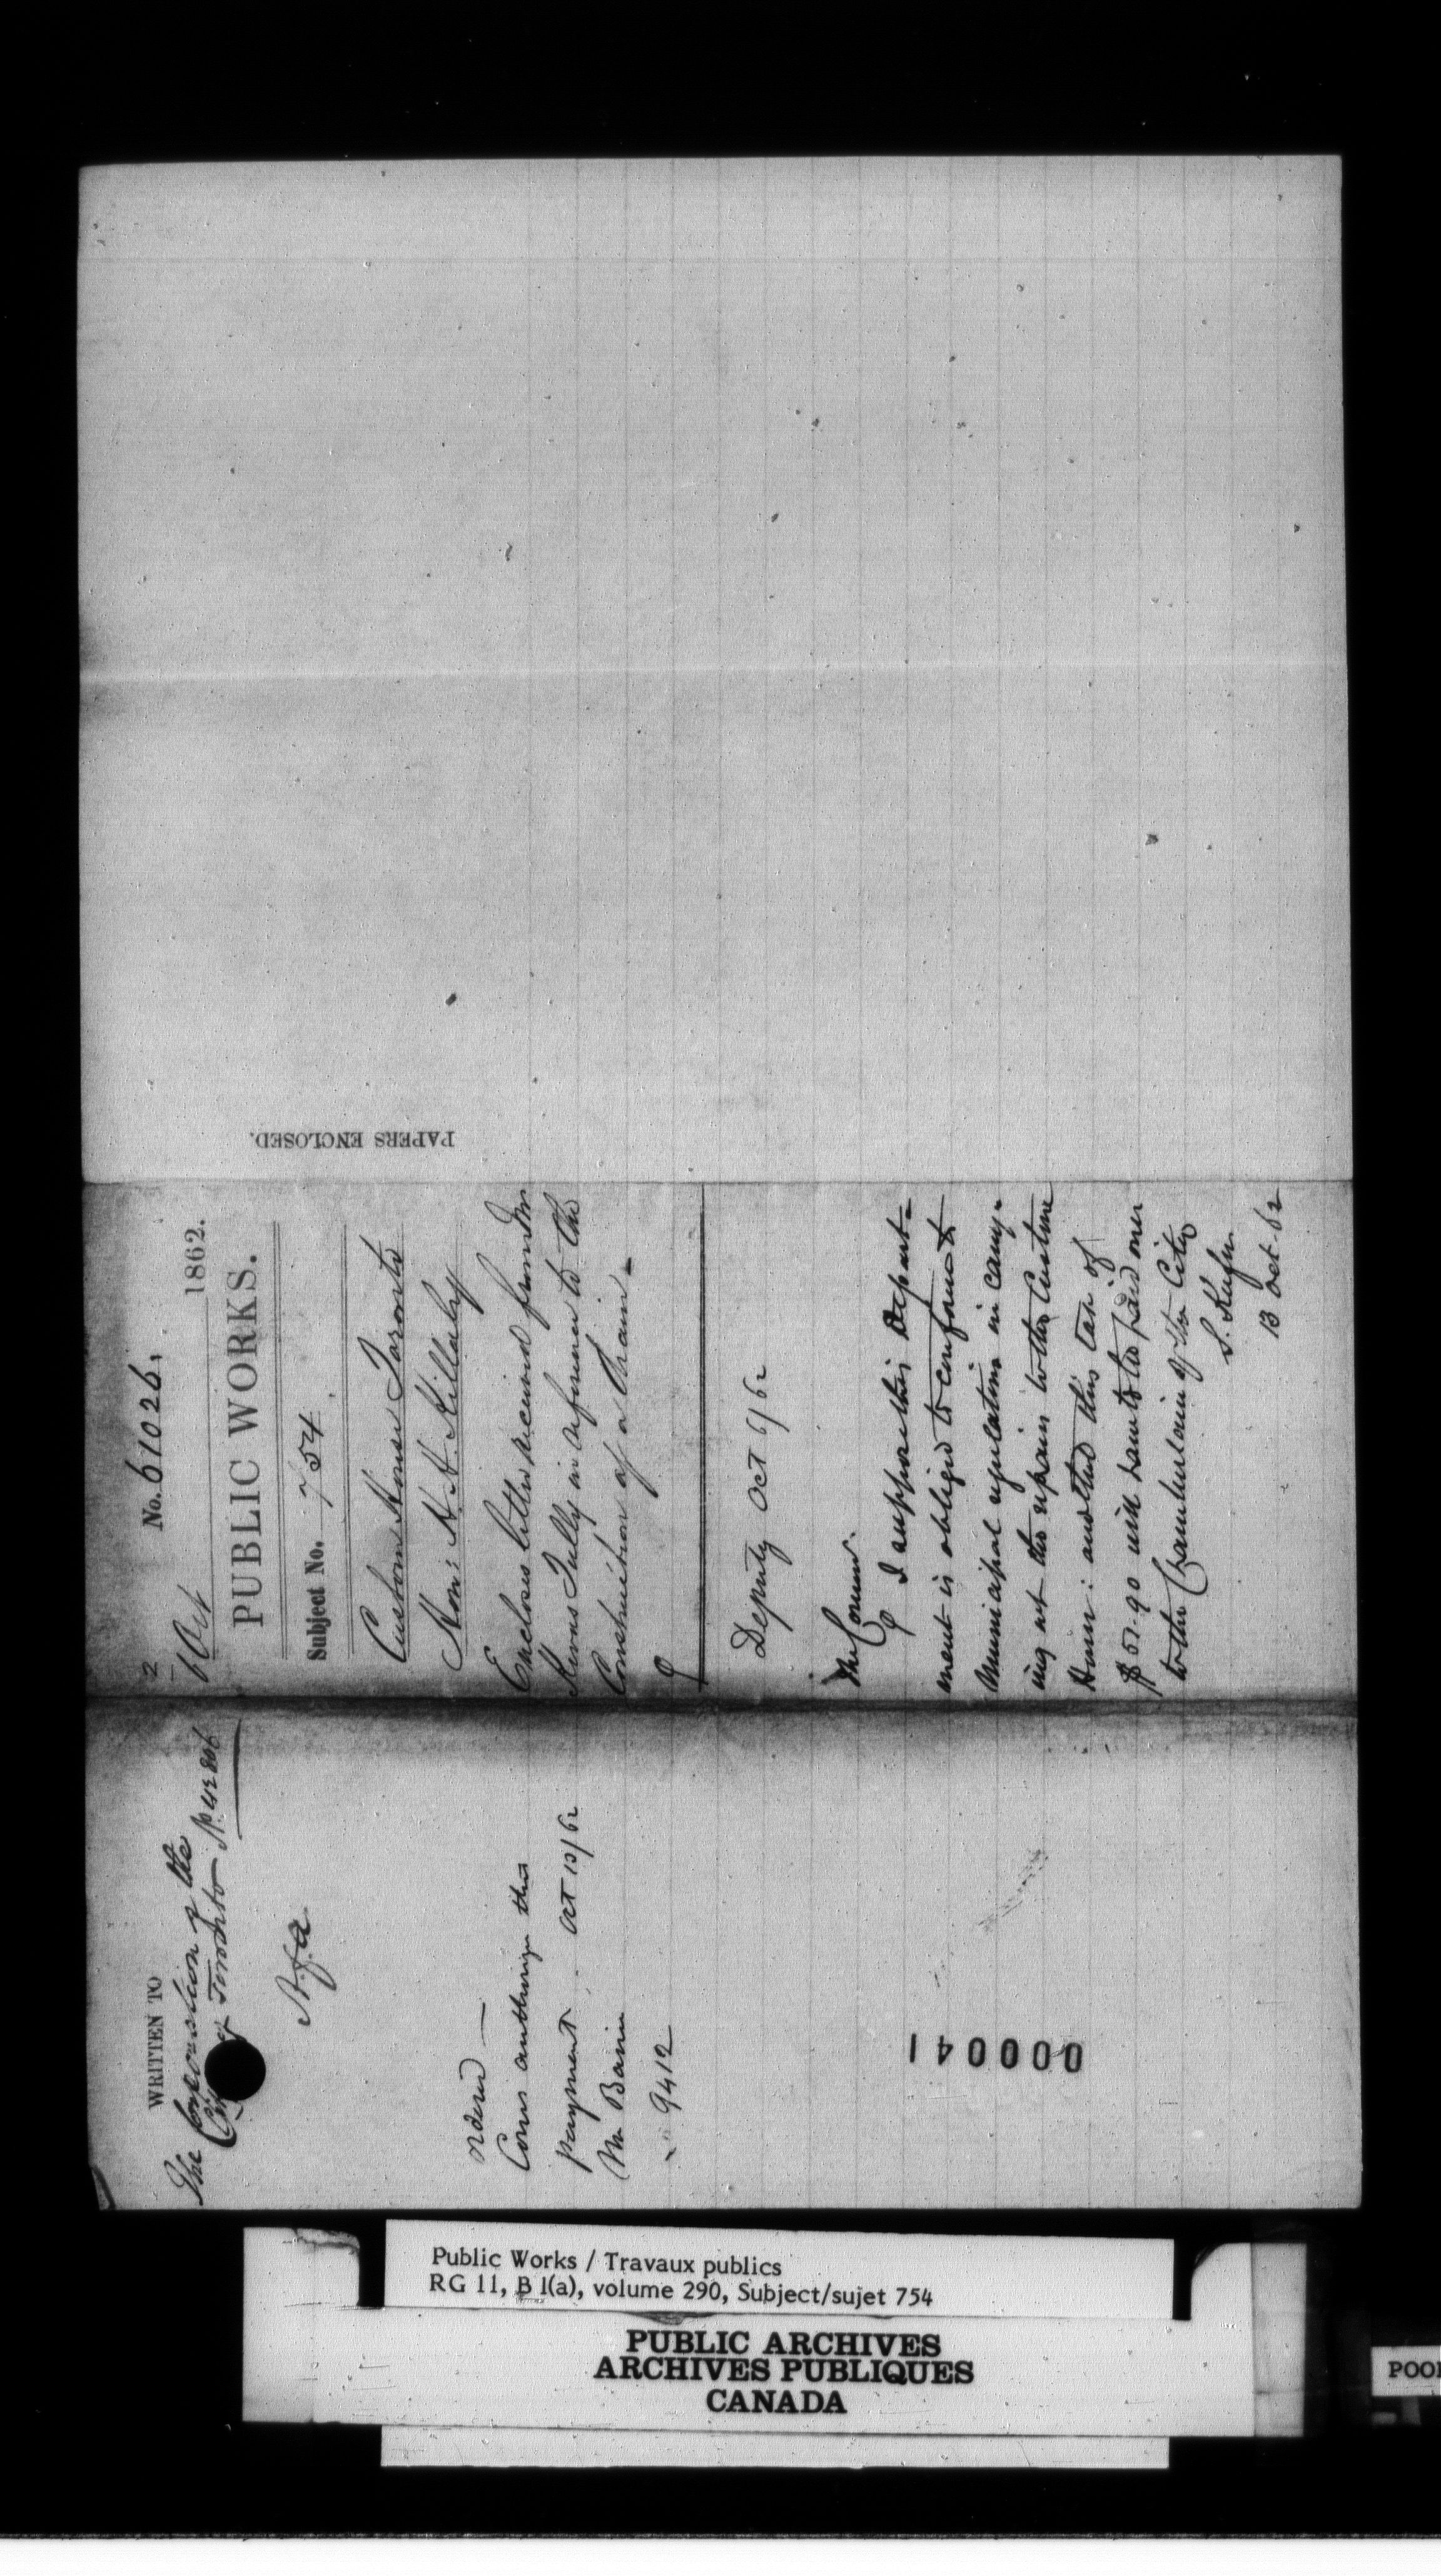 WRITTEN TO
The Corporation of the
City of Toronto No 42806
ordered —
Com authorize this
payment Oct 13/62
Mr Baine
9412
2 No. 61026.
6 Oct 1862.
PUBLIC WORKS.
Subject No. 754
Custom House Toronto
Hon: H. H. Killaly
Encloses letter received from Mr
Kivas Tully in reference to the
Construction of a Drain —
Deputy Oct 6/62
The Comm.
I suppose this Depart-
ment is obliged to conform to
Municipal regulations in carry-
ing out the repairs to the Custom
House: and that this tax of
$51.90 will have to be paid over
to the Chamberlain of the City
S. Keefer
13 Oct 62
PAPERS ENCLOSED.
000041
Public Works / Travaux publics
RG 11, B 1(a), volume 290, Subject/sujet 754
PUBLIC ARCHIVES
ARCHIVES PUBLIQUES
CANADA